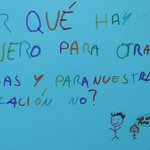 R QUÉ HAY
NERO PARA OTRA
AS Y PARA NUESTRA
CACIÓN NO?